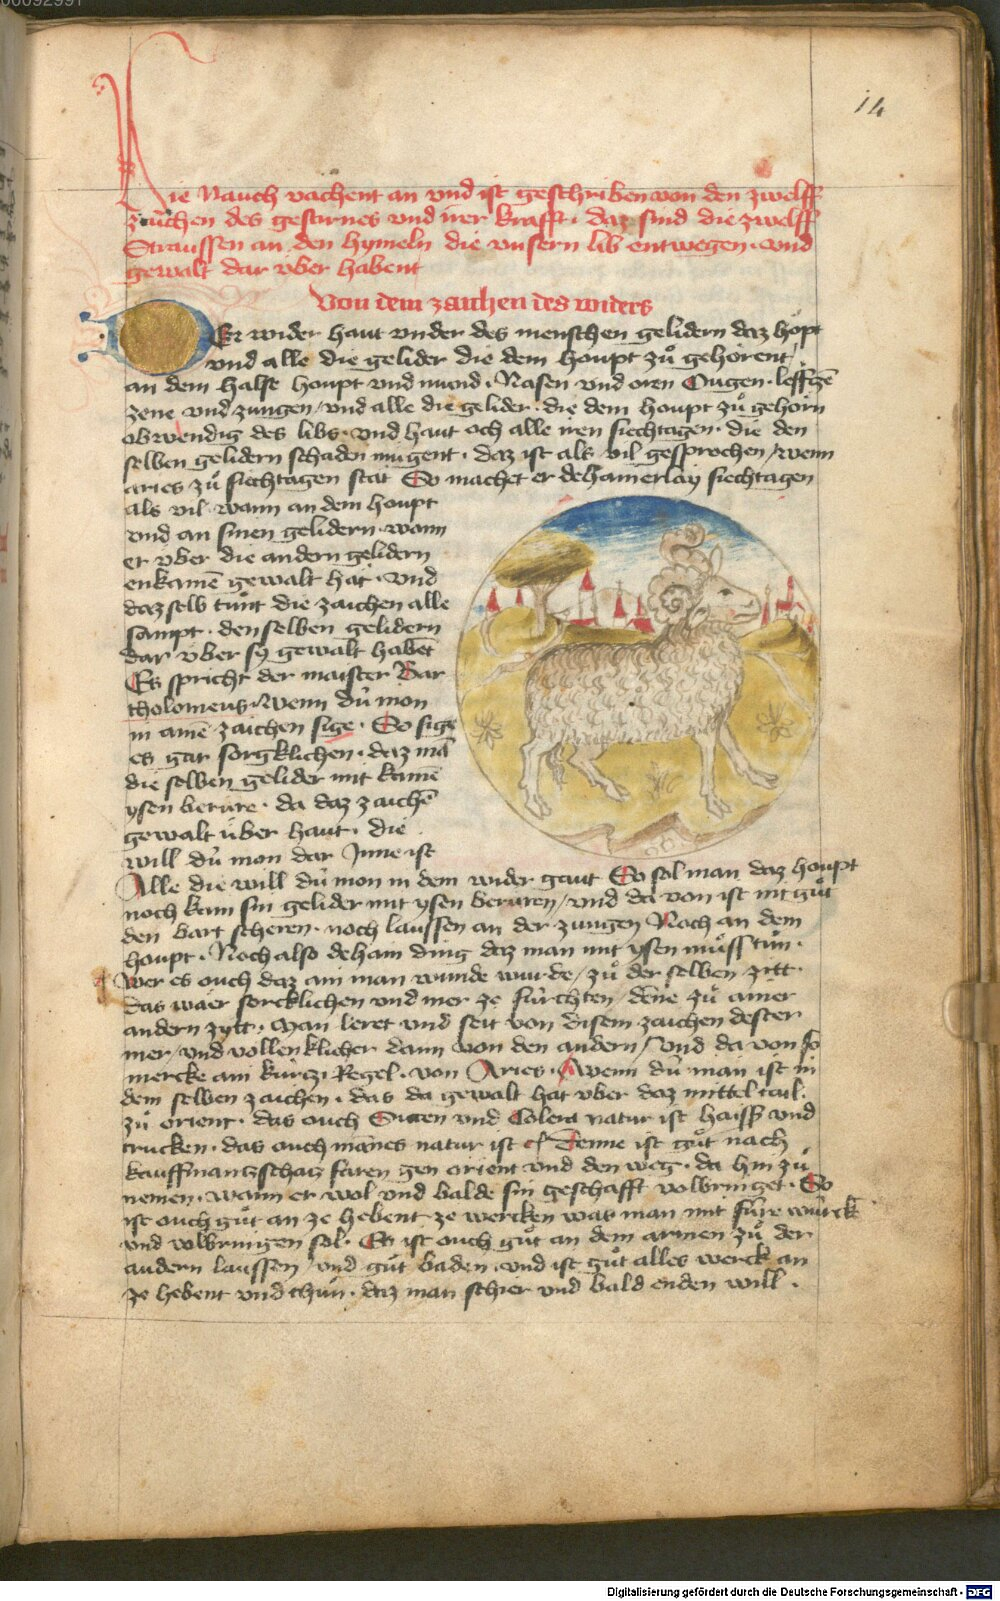 00092991
14
Hie Nauch vachent an vnd ist geschriben von den zwelff
zaichen des gestirnes vnd irer krafft · daz sind die zwelff
Straussen an den hymeln die vnsern lib entwegen · vnd
gewalt dar v̈ber habent
Von dem zaichen des widers
DEr wider haut vnder des menschen gelidern daz hopt
vnd alle die gelider die dem houpt zů gehörent
an dem halse houpt vnd mund · Nasen vnd oren Ougen · leffczē
zene vnd zungen / vnd alle die gelider · die dem houpt zů gehörn
obwendig des libs · vnd haut och alle iren siechtagen · die den
selben gelidern schaden mugent · daz ist als vil gesprochen / wenn
aries zů siechtagen stät So machet er dehainerlay siechtagen
als vil wann an dem houpt
vnd an sinen gelidern · wann
er v̈ber die andern gelidern
enkainē gewalt hät · vnd
daz selb tůnt die zaichen alle
sampt · den selben gelidern
dar v̈ber sy gewalt habēt
Es spricht der maister Bar
tholomeus · Wenn dů mon
in ainē zaichen sige · So sige
es gar sorgklichen · daz mā
die selben gelider mit kainē
ysen berüre · da daz zaichē
gewalt über haut · die
will dů mon dar Inne ist
Alle die will dů mon in dem wider gaut So sol man daz houpt
noch kain sin gelider mit ysen berüren / vnd da von ist nit gůt
den bart scheren · noch laussen an der zungen Noch an dem
houpt · Noch also dehain ding daz man mit ysen můss tůn ·
Wer es ouch daz ain man wunde wurde / zů der selben zitt
das wäer sercklichen vnd mer ze fürchten / dēne zů ainer
andern zytt · Man leret vnd seit von disem zaichen dester
mer / vnd vollenklicher dann von den andern / vnd da von so
mercke ain kurtzi Regel · von Aries · Wenn dů man ist in
dem selben zaichen · das da gewalt hat v̈ber daz mittel tail ·
zů orient · das ouch und Colera natur ist haiss vnd
trucken · das ouch mānes natur ist Denne ist gůt nach
kauffmantzschatz faren gen orient vnd den weg · da hin zů
nemen · wann er wol vnd balde sin geschafft volbringet · So
ist ouch gůt an ze hebent ze wercken was man mit füre würck
vnd volbringen sol · Es ist ouch gůt an dem armen zů der
audern laussen / vnd gůt baden · vnd ist gůt alles werck an
ze hebent vnd thůn · daz man schier vnd bald enden will ·
Digitalisierung gefördert durch die Deutsche Forschungsgemeinschaft - DFG